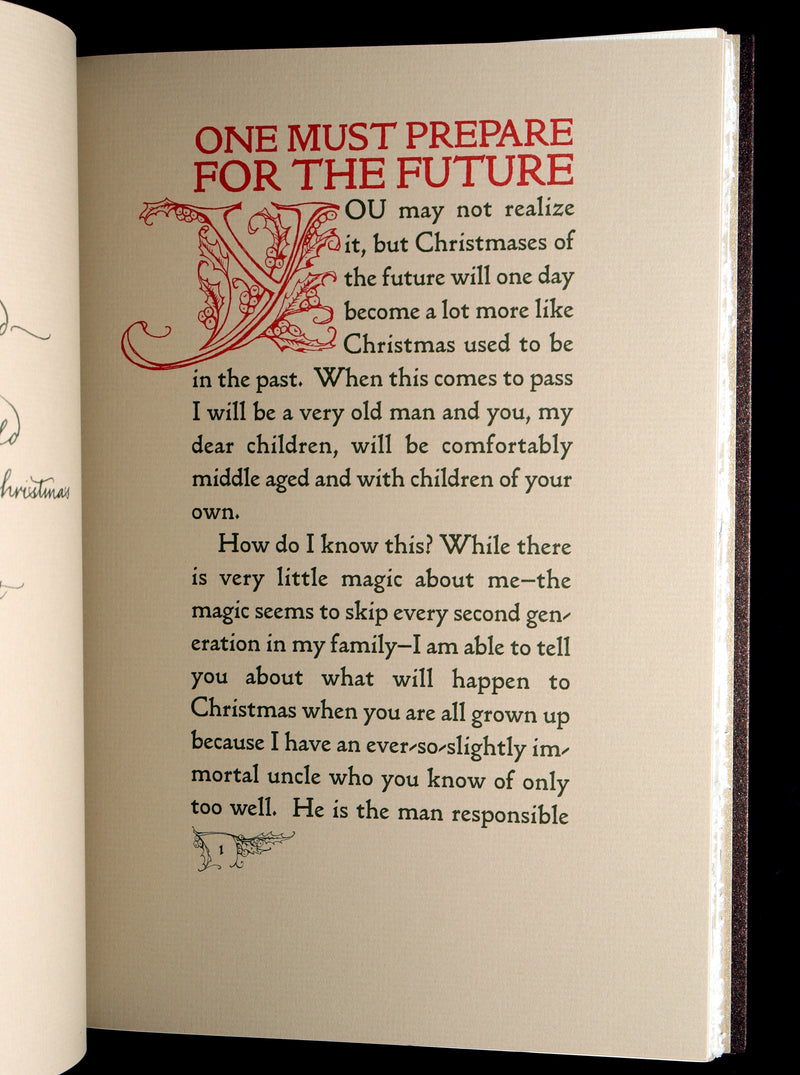 d
ld
hristmas
ONE MUST PREPARE
FOR THE FUTURE
YOU may not realize
it, but Christmases of
the future will one day
become a lot more like
Christmas used to be
in the past. When this comes to pass
I will be a very old man and you, my
dear children, will be comfortably
middle aged and with children of your
own.
How do I know this? While there
is very little magic about me—the
magic seems to skip every second gen-
eration in my family—I am able to tell
you about what will happen to
Christmas when you are all grown up
because I have an ever-so-slightly im-
mortal uncle who you know of only
too well. He is the man responsible
1